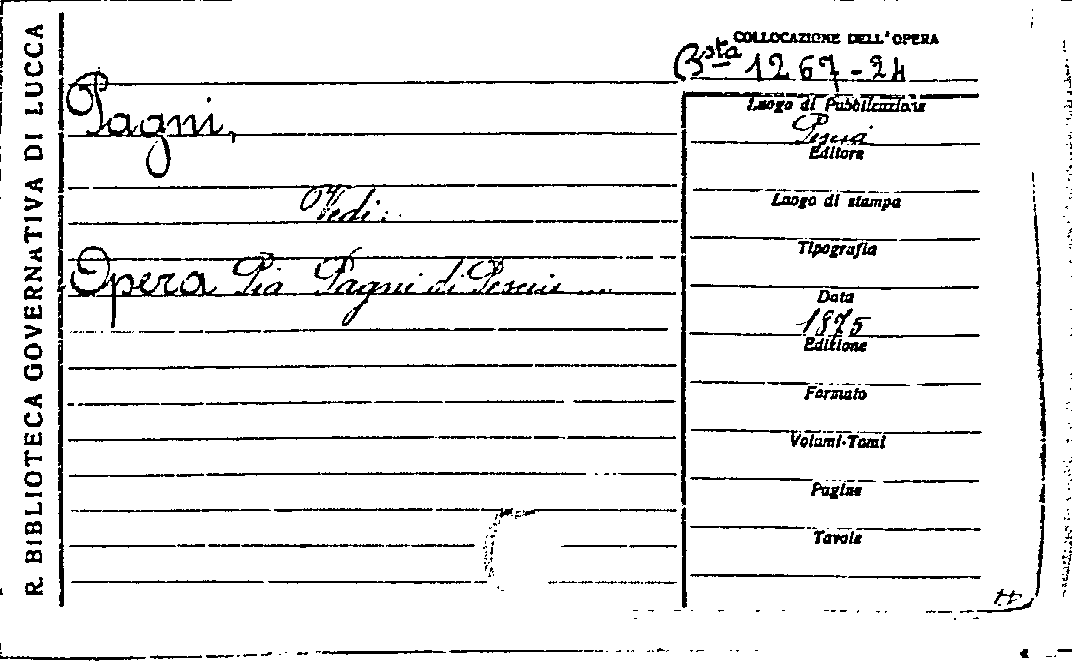 R. BIBLIOTECA GOVERNATIVA DI LUCCA
COLLOCAZIONE DELL'OPERA
Bsta 1267-24
Pagni,
Vedi:
Opera Pia Pagni di Pescia ...
Luogo di Pubblicazione
Pescia
Editore
Luogo di stampa
Tipografia
Data
1875
Edizione
Formato
Volumi-Tomi
Pagine
Tavole